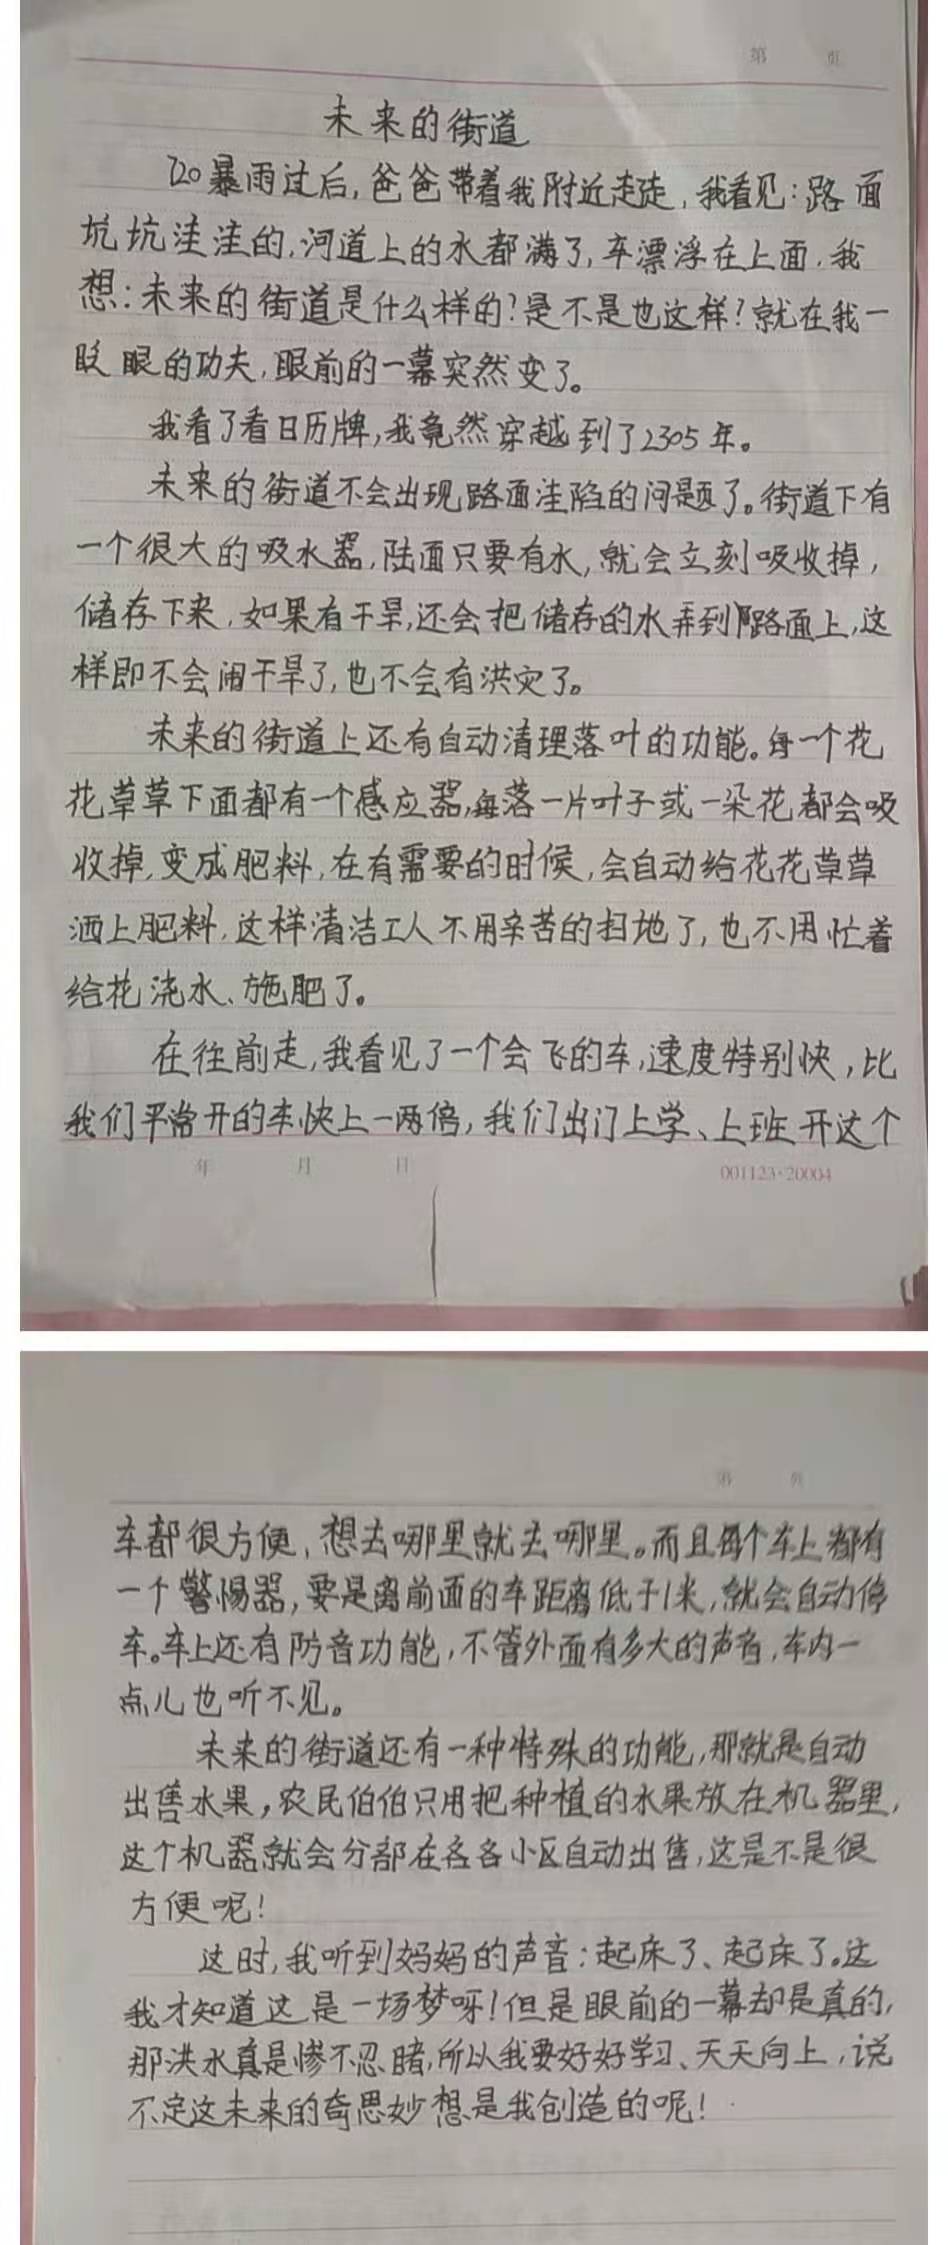 第 页
未来的街道
720暴雨过后,爸爸带着我附近走走,我看见:路面
坑坑洼洼的,河道上的水都满了,车漂浮在上面.我
想:未来的街道是什么样的?是不是也这样?就在我一
眨眼的功夫,眼前的一幕突然变了。
我看了看日历牌,我竟然穿越到了2305年。
未来的街道不会出现路面洼陷的问题了。街道下有
一个很大的吸水器,陆面只要有水,就会立刻吸收掉,
储存下来,如果有干旱,还会把储存的水弄到路面上,这
样即不会闹干旱了,也不会有洪灾了。
未来的街道上还有自动清理落叶的功能。每一个花
花草草下面都有一个感应器,每落一片叶子或一朵花都会吸
收掉,变成肥料,在有需要的时候,会自动给花花草草
洒上肥料,这样清洁工人不用辛苦的扫地了,也不用忙着
给花浇水、施肥了。
在往前走,我看见了一个会飞的车,速度特别快,比
我们平常开的车快上一两倍,我们出门上学、上班开这个
年 月 日
001123·20004
第 页
车都很方便,想去哪里就去哪里。而且每个车上都有
一个警惕器,要是离前面的车距离低于1米,就会自动停
车。车上还有防音功能,不管外面有多大的声音,车内一
点儿也听不见。
未来的街道还有一种特殊的功能,那就是自动
出售水果,农民伯伯只用把种植的水果放在机器里,
这个机器就会分部在各各小区自动出售,这是不是很
方便呢!
这时,我听到妈妈的声音:起床了、起床了。这
我才知道这是一场梦呀!但是眼前的一幕却是真的,
那洪水真是惨不忍睹,所以我要好好学习、天天向上,说
不定这未来的奇思妙想是我创造的呢!